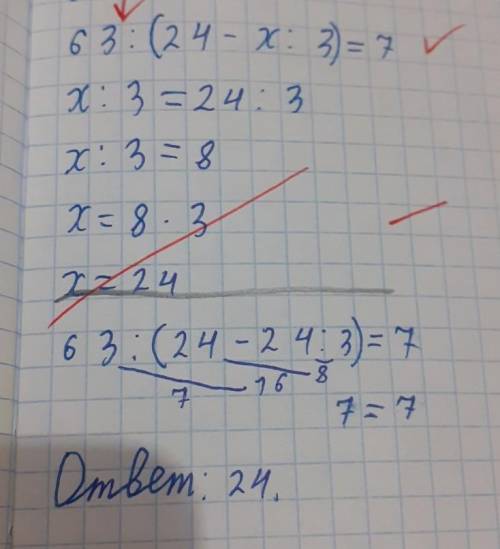 63:(24-x:3)=7
x:3=24:3
x:3=8
x=8·3
x=24
63:(24-24:3)=7
7 16 8
7=7
Ответ: 24.